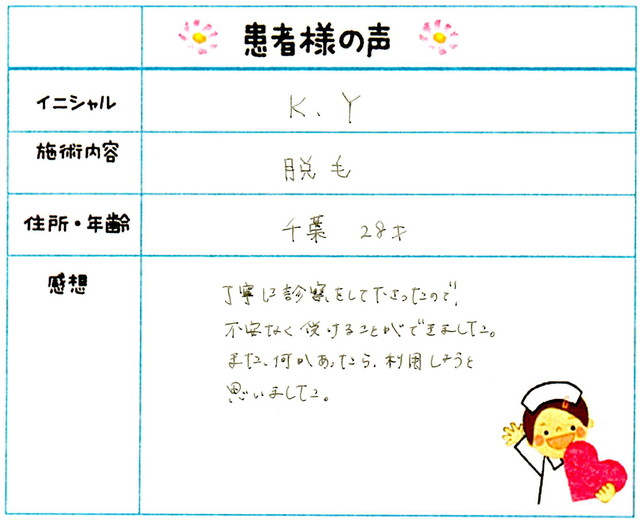 患者様の声
イニシャル K、Y
施術内容 脱毛
住所・年齢 千葉 28才
感想
丁寧に診察をして下さったので、
不安なく受けることができました。
また、何かあったら、利用しようと
思いました。